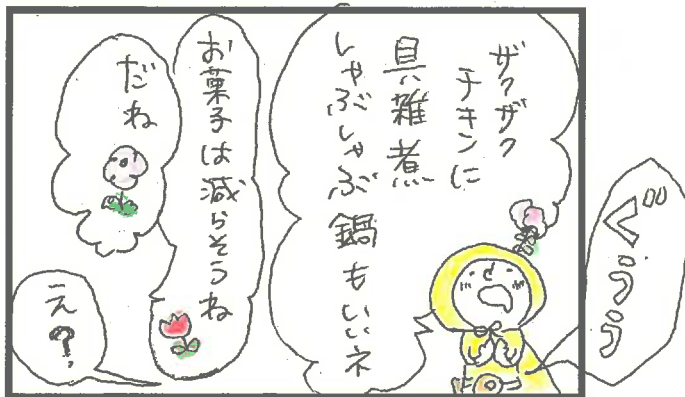 ザクザク
チキンに
具雑煮
しゃぶしゃぶ鍋もいいネ
ぐぅぅ
お菓子は減らそうね
だね
え?